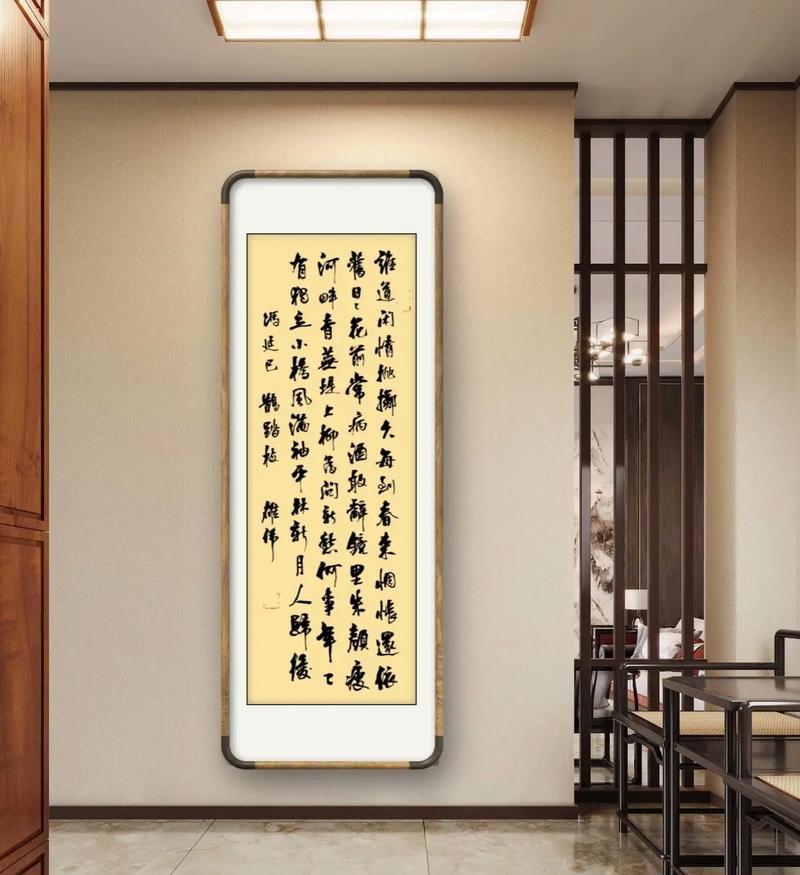 誰道闲情抛擲久每到春来惆悵還依
舊日〻花前常病酒敢辭鏡里朱顏瘦
河畔青蕪堤上柳為问新愁何事年〻
有独立小橋風滿袖平林新月人歸後
馮延巳 鵲踏枝 雄偉